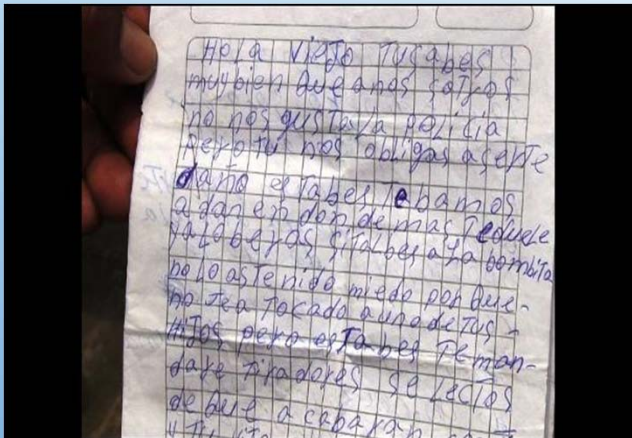 Hola viejo tusabes
muybien queanos sotros
no nos gusta la policia
perotu nos obligas aserte
daño estabes tebamos
a dan en don demas teduele
yalo beras sitalbes a la bombita
no lo as tenido miedo porque-
no tea tocado auno de tus-
hijos pero estabes teman-
dare tiradores selectos
de que acabaran